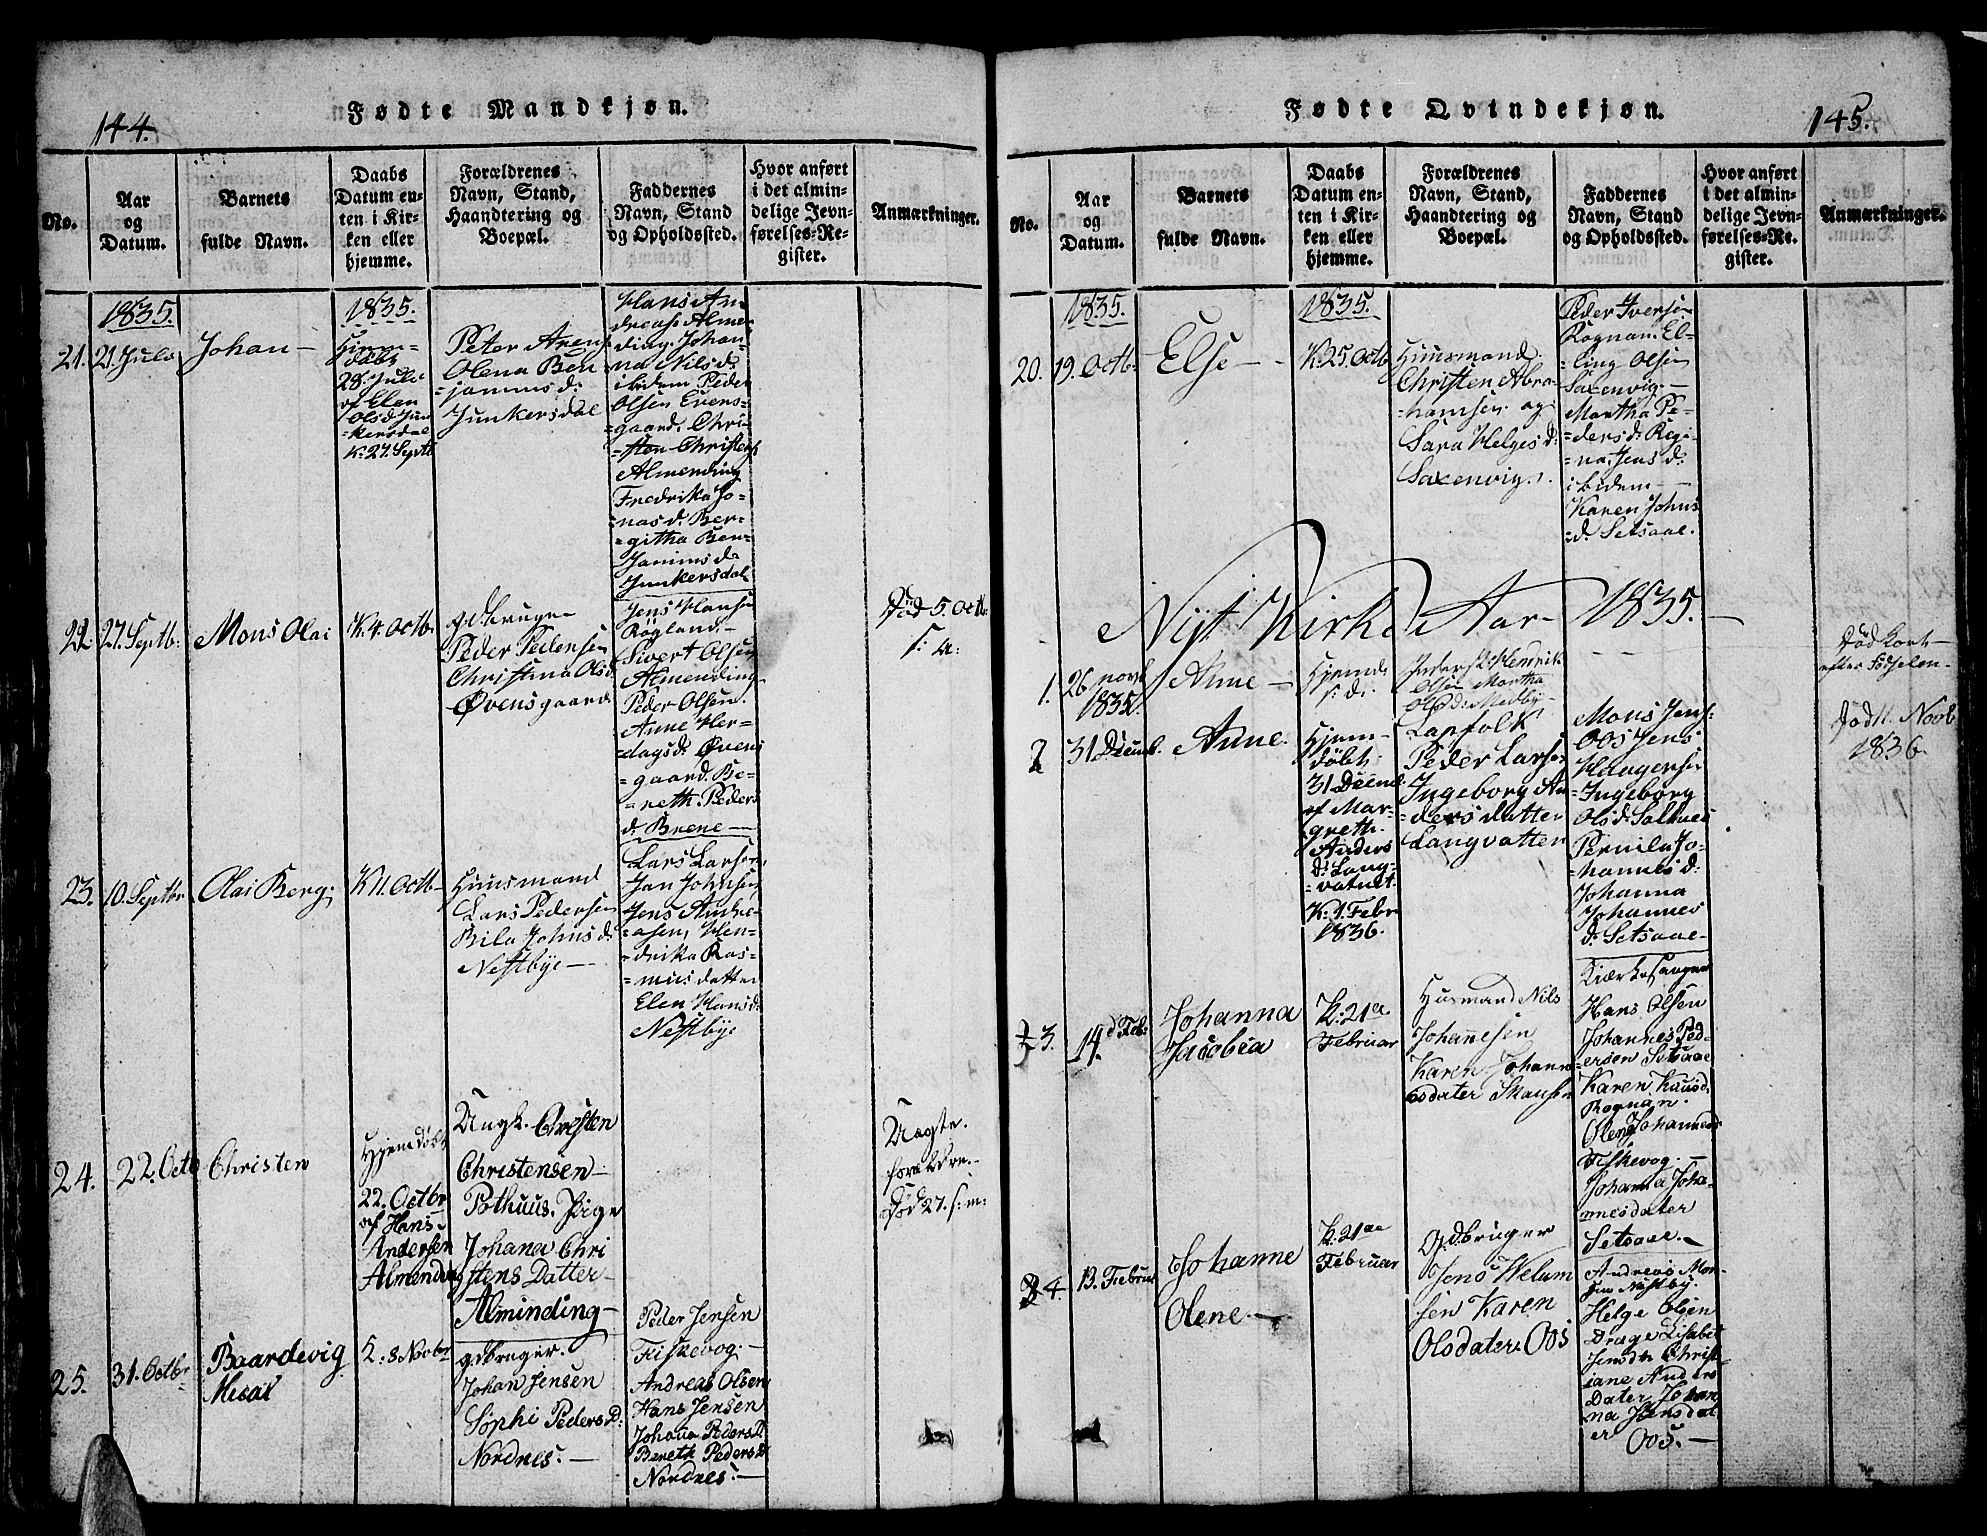 144.
Fødte Mandkjøn.
No.
Aar
og
Datum.
Barnets
fulde Navn.
Daabs
Datum en-
ten i Kir-
ken eller
hjemme.
Forældrenes
Navn, Stand,
Haandtering og
Boepæl.
Faddernes
Navn, Stand
og Opholdssted.
Hvor anført
i det almin-
delige Jevn-
førelses-Re-
gister.
Anmærkninger.
1835.
21.
21. Juli
Johan
1835.
Hjem-
døbt
28. Juli
af Elen
Olsd. Jun
kersdal
K. 27. Septb
Peter Arens
Olena Ben
jamins d.
Junkersdal
Hans An
dreass. Alme
ding. Johan
na Nilsd.
ibidem Peder
Olsen Evens-
gaard. Chri-
sten Christens
Almending
Fredrika Jo-
nasd. Ber-
githa Ben-
jamins d.
Junkersdal
22.
27. Septb.
Mons Olai
K. 4. Octb.
gdbruger
Peder Pedersen
Christina Olsd.
Øvensgaard
Jens Hansen
Røgland
Sivert Olsen
Almending
Peder Olsen
Anne Her-
dagsd. Øvens
gaard. Be-
reth Peders
d. Brene
Død 5. Octb.
s: A:
23.
10. Septbr
Olai Berg.
K 11. Octb
Huusmand
Lars Pedersen
Bila Johns d.
Nestbye
Lars Larsen
Jan Johnsen
Jens Andre-
asen, Hen-
drika Ras-
mus datter
Elen Hansd.
Nestbye
24.
22. Octb
Christen
Hjemdøbt
22. Octbr
af Hans
Andersen
Almending
Ungk. Christen
Christensen
Pothuus. Pige
Johana Chri
stens Datter
Alminding
Uægte.
Død 27. s: m:
25.
31. Octbr
Baardevig
Mesal
K: 8 Nobr
gdbruger.
Johan Jensen
Sophi Peders D:
Nordnes.
Peder Jensen
Fiskevog.
Andreas Olsen
Hans Jensen
Johana Peders D
Bereth Peders D
Nordnes.
145.
Fødte Qvindekjøn.
No.
Aar
og
Datum.
Barnets
fulde Navn.
Daabs
Datum en-
ten i Kir-
ken eller
hjemme.
Forældrenes
Navn, Stand,
Haandtering og
Boepæl.
Faddernes
Navn, Stand
og Opholdssted.
Hvor anført
i det almin-
delige Jevn-
førelses-Re-
gister.
Anmærkninger.
1835.
20.
19. Octb.
Else
1835.
K. 25. Octb
Huusmand
Christen Abra-
hamsen og
Sara Helges d.
Saxenvig.
Peder Iversen
Rognan. El-
ling Olsen
Saxenvig.
Martha Pe-
ders d. Regi-
na Jens d.
ibidem
Karen Johns
d. Setsaae.
Nyt Kirke Aar 1835.
1.
26 novb
1835.
Anne
Hjemde
s: d:
Inderst Hendrik
Olsen Martha
Olsd. Medby
Død kort
efter Fødselen
2
31 Decmb.
Anne.
Hjem-
døbt
31 Decmb
af Mar-
greth
Anders
d. Lang-
vatnet
K. 1. Febr
1836.
Lapfolk
Peder Larsen
Ingeborg An
ders datter
Langvatten
Mons Jens.
Oos Jens
Haagensen
Ingeborg
Olsd. Saltnes
Pernila Jo-
hannes d.
Johanna
Johannes
d. Setsaae
Død 11. Novb
1836.
3.
14. d Feb.
Johanna
Jacobia
K: 21de
Februar
Husmand Nils
Johanesen
Karen Johann
esdater Skansen
Kiærkesanger
Hans Olsen
Johannes Ped-
ersen Setsaae
Karen Knusd.
Rognan.
Olena Johannesd
Fiskevog.
Johanna Joha-
nnesdater
Setsaae.
4.
13. Februar
Johanne
Olene.
K: 21de
Februar
Gdbruger
Jens Welum
sen Karen
Olsdater Oos
Andreas Mon-
sen Nestby
Helge Olsen
Drage Lisabet
Jensdtr Christ-
iane Anders
Dater Johan
na Jensdat
er
Oos.